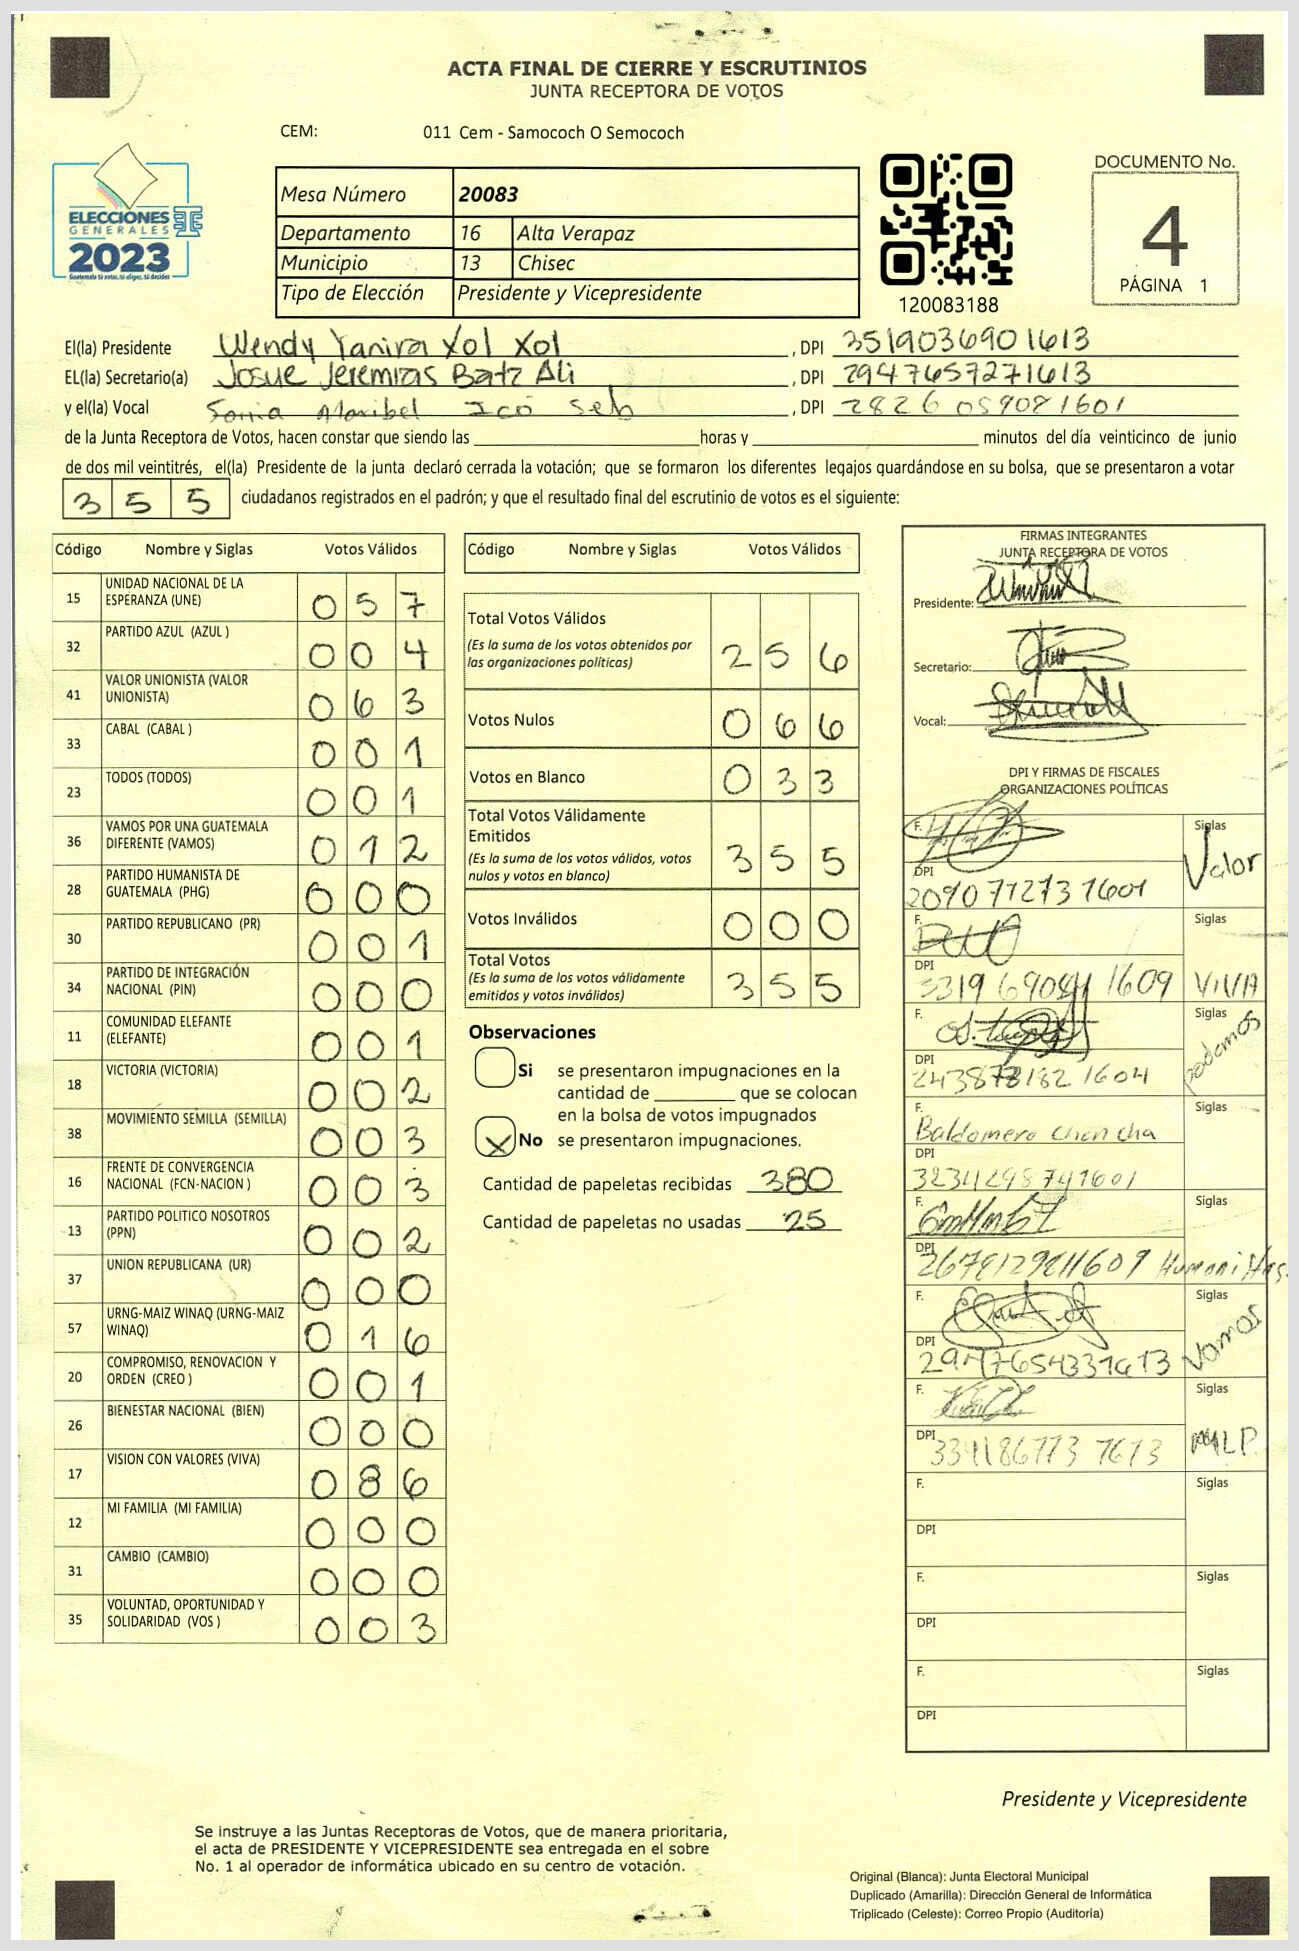 ACTA FINAL DE CIERRE Y ESCRUTINIOS
JUNTA RECEPTORA DE VOTOS
CEM: 011 Cem - Samococh O Semococh
ELECCIONES
GENERALES
2023
Guatemala tú votas, tú eliges, tú decides
Mesa Número 20083
Departamento 16 Alta Verapaz
Municipio 13 Chisec
Tipo de Elección Presidente y Vicepresidente
120083188
DOCUMENTO No.
4
PÁGINA 1
El(la) Presidente Wendy Yanira Xol Xol , DPI 3519036901613
EL(la) Secretario(a) Josue Jeremias Batz Ali , DPI 2947657271613
y el(la) Vocal Sonia Maribel Icó Seb , DPI 2826059081601
de la Junta Receptora de Votos, hacen constar que siendo las horas y minutos del día veinticinco de junio
de dos mil veintitrés, el(la) Presidente de la junta declaró cerrada la votación; que se formaron los diferentes legajos guardándose en su bolsa, que se presentaron a votar
355 ciudadanos registrados en el padrón; y que el resultado final del escrutinio de votos es el siguiente:
Código Nombre y Siglas Votos Válidos
15 UNIDAD NACIONAL DE LA
ESPERANZA (UNE) 057
32 PARTIDO AZUL (AZUL ) 004
41 VALOR UNIONISTA (VALOR
UNIONISTA) 063
33 CABAL (CABAL ) 001
23 TODOS (TODOS) 001
36 VAMOS POR UNA GUATEMALA
DIFERENTE (VAMOS) 012
28 PARTIDO HUMANISTA DE
GUATEMALA (PHG) 000
30 PARTIDO REPUBLICANO (PR) 001
34 PARTIDO DE INTEGRACIÓN
NACIONAL (PIN) 000
11 COMUNIDAD ELEFANTE
(ELEFANTE) 001
18 VICTORIA (VICTORIA) 002
38 MOVIMIENTO SEMILLA (SEMILLA) 003
16 FRENTE DE CONVERGENCIA
NACIONAL (FCN-NACION ) 003
13 PARTIDO POLITICO NOSOTROS
(PPN) 002
37 UNION REPUBLICANA (UR) 000
57 URNG-MAIZ WINAQ (URNG-MAIZ
WINAQ) 016
20 COMPROMISO, RENOVACION Y
ORDEN (CREO ) 001
26 BIENESTAR NACIONAL (BIEN) 000
17 VISION CON VALORES (VIVA) 086
12 MI FAMILIA (MI FAMILIA) 000
31 CAMBIO (CAMBIO) 000
35 VOLUNTAD, OPORTUNIDAD Y
SOLIDARIDAD (VOS ) 003
Código Nombre y Siglas Votos Válidos
Total Votos Válidos
(Es la suma de los votos obtenidos por
las organizaciones políticas) 256
Votos Nulos 066
Votos en Blanco 033
Total Votos Válidamente
Emitidos
(Es la suma de los votos válidos, votos
nulos y votos en blanco) 355
Votos Inválidos 000
Total Votos
(Es la suma de los votos válidamente
emitidos y votos inválidos) 355
Observaciones
Si se presentaron impugnaciones en la
cantidad de que se colocan
en la bolsa de votos impugnados
X No se presentaron impugnaciones.
Cantidad de papeletas recibidas 380
Cantidad de papeletas no usadas 25
FIRMAS INTEGRANTES
JUNTA RECEPTORA DE VOTOS
Presidente:
Secretario:
Vocal:
DPI Y FIRMAS DE FISCALES
ORGANIZACIONES POLÍTICAS
F. Siglas
Valor
DPI
2090712731601
F. Siglas
DPI
VIVA
F. Siglas
podemos
DPI
F. Siglas
Baldomero
DPI
F. Siglas
DPI
Humanistas
F. Siglas
Vamos
DPI
2947654331613
F. Siglas
MLP
DPI
F. Siglas
DPI
F. Siglas
DPI
F. Siglas
DPI
Presidente y Vicepresidente
Se instruye a las Juntas Receptoras de Votos, que de manera prioritaria,
el acta de PRESIDENTE Y VICEPRESIDENTE sea entregada en el sobre
No. 1 al operador de informática ubicado en su centro de votación.
Original (Blanca): Junta Electoral Municipal
Duplicado (Amarilla): Dirección General de Informática
Triplicado (Celeste): Correo Propio (Auditoría)